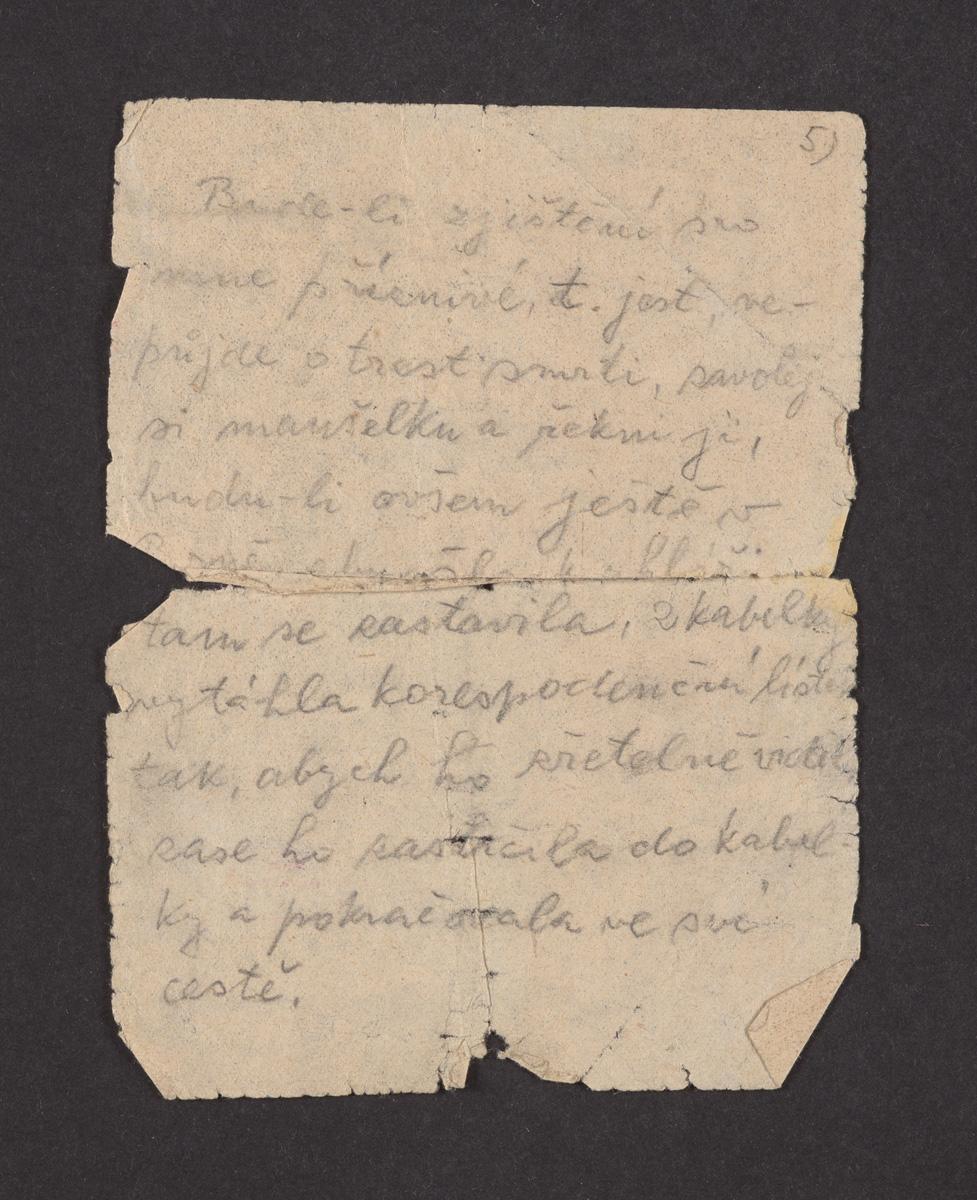 5)
Bude-li zjištění pro
mne příznivé, t. jest, ne-
půjde o trest smrti, zavolej
si manželku a řekni jí,
budu-li ovšem ještě v
aby šla k
tam se zastavila, z kabelky
vytáhla korespodenční lístek
tak, abych ho zřetelně viděl
zase ho zastrčila do kabel-
ky a pokračovala ve své
cestě.